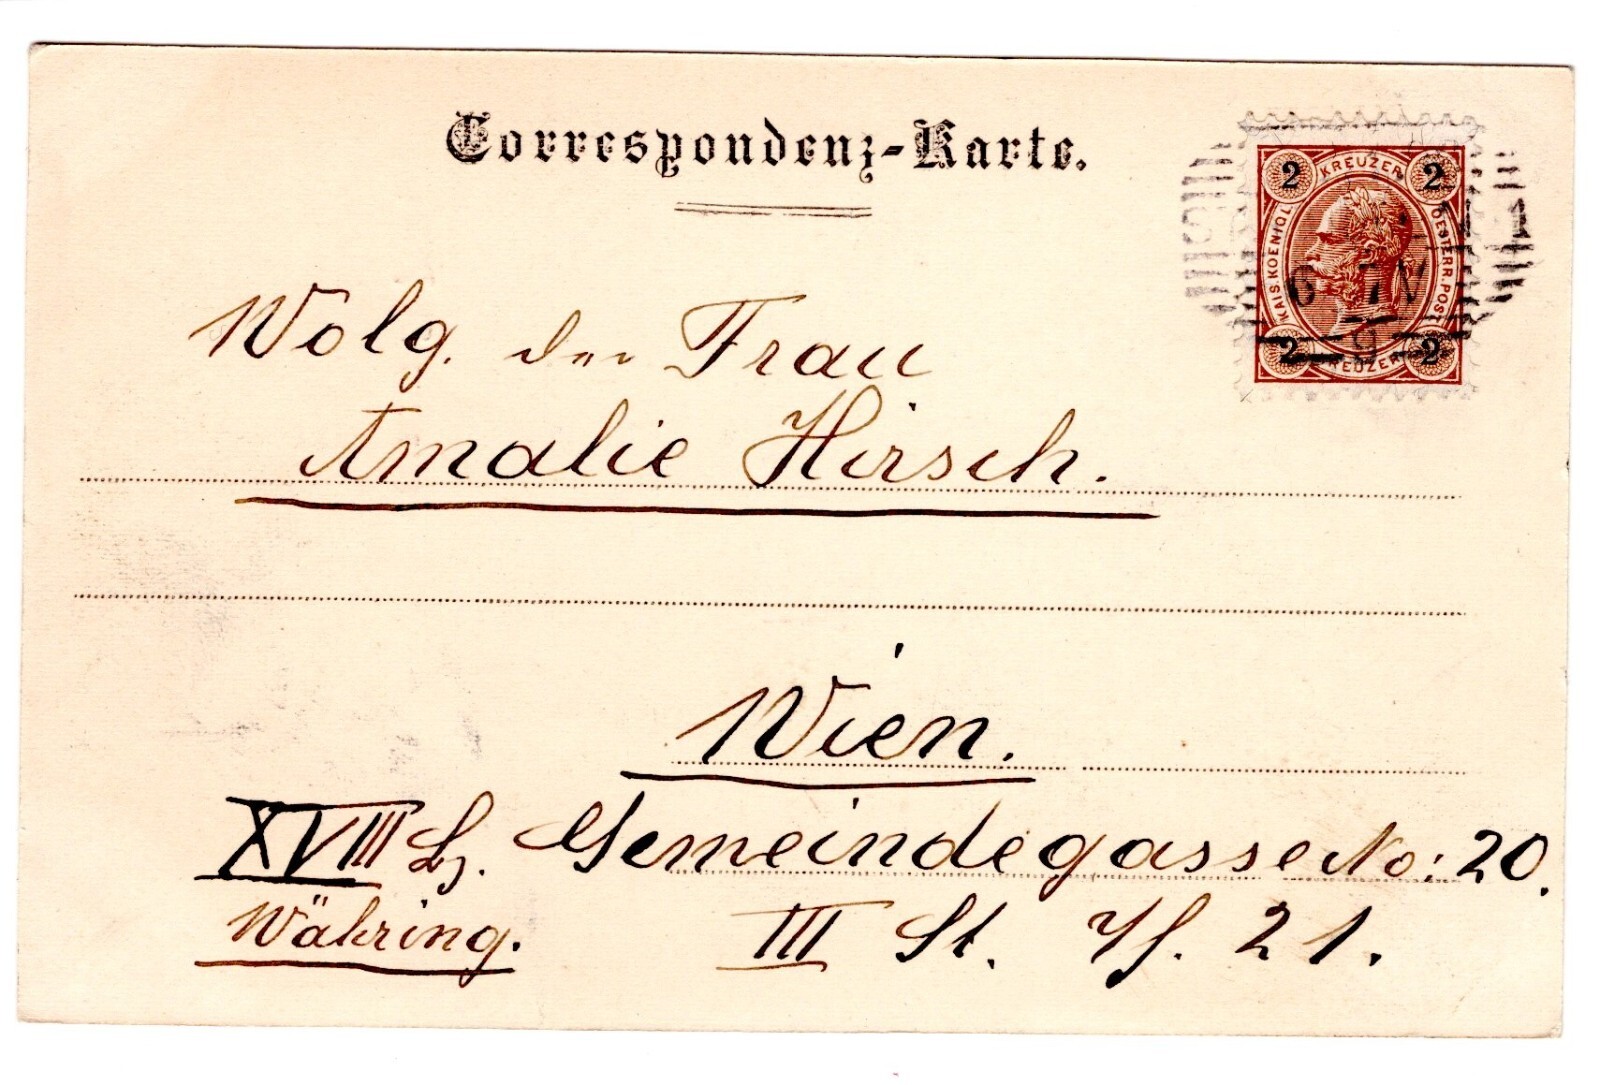 Correspondenz-Karte.
2 KREUZER 2
KAIS. KOENIGL. OESTERR. POST
6 7N
9
2 KREUZER 2
Wolg. der Frau
Amalie Hirsch.
Wien.
XVIII Bz. Gemeindegasse No: 20.
Währing. III St. Th. 21.